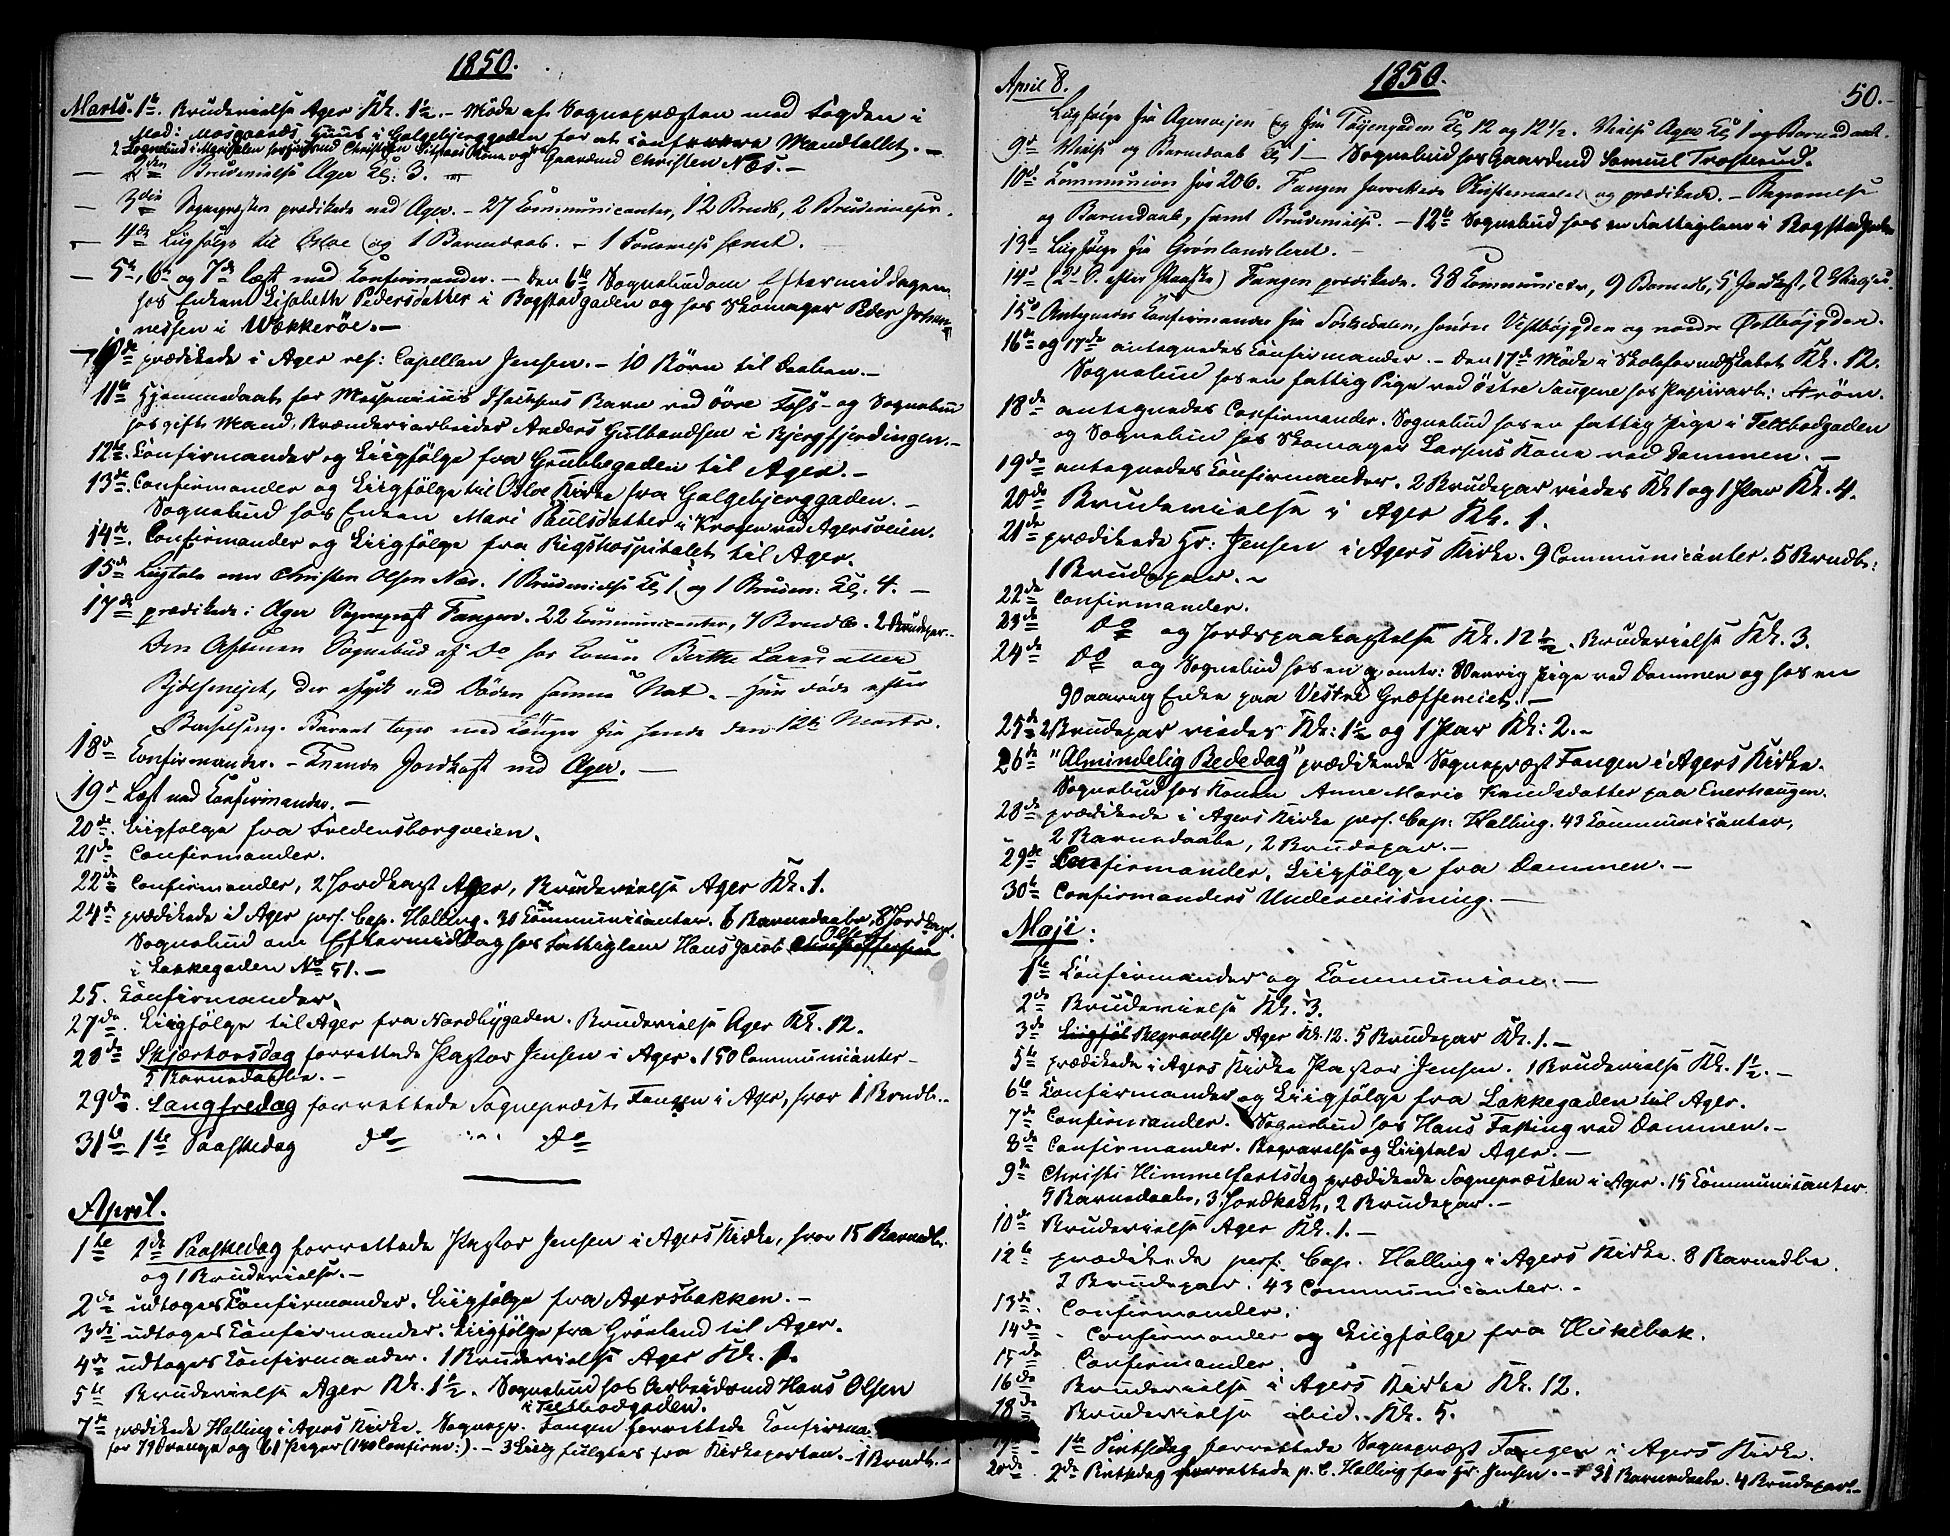 1850.
Marts. 1te Brudevielse Ager Kl. 1½. – Møde af Sognepræsten med Fogden i
Mad: Mosgaards Huus i Galgebjerggaden for at conferere Mandtallet. –
2 Sognebud i
– 2den Brudevielse Ager Kl: 3. – Gaardmd Christen Næs. –
– 3die Sognepræsten prædikede ved Ager. – 27 Communicanter, 12 Barnedb, 2 Brudevielser.
– 4de Liigfølge til Oslo og 1 Barnedaab. –
– 5te, 6te og 7de læst med Confirmander. – Den 6te Sognebud om Eftermiddagen
hos Enken Lisabeth Pedersdatter i Bogstadgaden og hos Skomager Peder Johan-
nessen i Wækkerøe. –
10de prædikede i Ager res: Capellan Jensen. – 10 Børn til Daaben. –
11te Hjemmedaab for Isachsens Barn ved Øvre Fos – og Sognebud
hos gift Mand, Brænderiarbeider Anders Gulbrandsen i Bjergfjerdingen. –
12te Confirmander og Liigfølge fra Grubbegaden til Ager. –
13de Confirmander og Liigfølge til Oslo Kirke fra Galgebjerggaden. –
Sognebud hos Enken Mari Paulsdatter i Krogen ved Agersveien.
14de Confirmander og Liigfølge fra Rigshospitalet til Ager.
15de Liigtale over Christen Olsen Næs. 1 Brudevielse Kl. 1 og 1 Brudev: Kl. 4. –
17de prædikede i Ager Sognepræst Fangen. 22 Communicanter, 7 Barnedb. 2 Brudepar. –
Den Aftenen Sognebud af Do hos Konen Berthe Larsdatter
Bjølsenejet, der afgik ved Døden samme Nat. – Hun døde efter
Barselseng. Barnet toges med Tænger fra hende den 12te Marts.
18de Confirmander. – Jordkast ved Ager. –
19de Læst med Confirmander. –
20de Liigfølge fra Fredensborgveien.
21de Confirmander.
22de Confirmander, 2 Jordkast Ager, Brudevielse Ager Kl. 1.
24de prædikede i Ager pers. Cap. Halling. 30 Communicanter. 6 Barnedaabe, 8 Jordkast.
Sognebud om Eftermiddag hos Fattiglem Hans Jacob Olsen
i Lakkegaden No 51. –
25. Confirmander.
27de Liigfølge til Ager fra Nordbygaden. Brudevielse Ager Kl. 12.
28de Skjærtorsdag forrettede Pastor Jensen i Ager. 150 Communicanter –
5 Barnedaabe. –
29de. Langfredag forrettede Sognepræst Fangen i Ager, hvor 1 Barnedb. –
31te 1te Paaskedag do Do
April.
1te 2de Paaskedag forrettede Pastor Jensen i Agers Kirke, hvor 15 Barnedb.
og 1 Brudevielse. –
2de udtoges Confirmander. Liigfølge fra Agersbakken. –
3die udtoges Confirmander. Liigfølge fra Grønland til Ager.
4de udtoges Confirmander. 1 Brudevielse Ager Kl. 1.
5te Brudevielse Ager Kl. 1½. Sognebud hos Arbeidsmd Hans Olsen
i Teltbodgaden.
7de prædikede Halling i Agers Kirke. Sognepr. Fangen forrettede Confirma-
for 79 Drenge og 61 Piger (140 Confirm:). – 3 Liig fulgtes fra Kirkeporten. – 1 Barnedb. –
April 8.
1850.
50. –
Liigfølge fra Agersveien og fra Tøiengaden Kl 12 og 12½. Vielse Ager Kl 1 og Barnedaab.
9de Vielse og Barnedaab Kl 1 – Sognebud hos Gaardmd Samuel Trosterud.
10de Communion for 206. Fangen forrettede Skriftemaalet og prædikede. – Begravelse
og Barnedaab, samt Brudevielse. – 12te Sognebud hos en Fattiglem i Bogstadgaden
13de Liigfølge fra Grønlandsleret. –
14de (2 S. efter Paaske) Fangen prædikede. 38 Communicanter, 9 Barnedb, 5 Jordkast, 2 Vielser
15de Antegnedes Confirmander fra Sørkedalen, søndre Vestbøjgden og nordre Østbøjgden.
16te og 17de antegnedes Confirmander. – Den 17de Møde i Skoleformandskabet Kl. 12.
Sognebud hos en fattig Pige ved Østre Saugene hos Papiirarb: Strøm.
18de antegnedes Confirmander. Sognebud hos en fattig Pige i Teltbodgaden
og Sognebud hos Skomager Larsens Kone ved Dammen. –
19de antegnedes Confirmander. 2 Brudepar viedes Kl 1 og 1 Par Kl. 4.
20de Brudevielse i Ager Kl. 1.
21de prædikede Hr: Jensen i Agers Kirke. 9 Communicanter. 5 Barnedb:
1 Brudepar. –
22de Confirmander.
23de do og Jordspaakastelse Kl. 12½. Brudevielse Kl. 3.
24de do og Sognebud hos en omtr: aarig Pige ved Dammen og hos en
90 aarig Enke paa Vestre Græffeneiet. –
25de 2 Brudepar viedes Kl: 1½ og 1 Par Kl: 2. –
26de "Almindelig Bededag" prædikede Sognepræst Fangen i Agers Kirke.
Sognebud hos Konen Anne Marie Knudsdatter paa Enerhaugen.
28de prædikede i Agers Kirke pers. Cap: Halling. 43 Communicanter,
2 Barnedaabe, 2 Brudepar. –
29de Confirmander, Liigfølge fra Dammen. –
30te Confirmanders Underviisning. –
Maji:
1te Confirmander og Communion. –
2de Brudevielse Kl. 3.
3de Liigføl Begravelse Ager Kl. 12. 5 Brudepar Kl. 1. –
5te prædikede i Agers Kirke Pastor Jensen. 1 Brudevielse Kl. 1½. –
6te Confirmander og Liigfølge fra Lakkegaden til Ager.
7de Confirmander. Sognebud hos Hans Fasting ved Dammen. –
8de Confirmander. Begravelse og Liigtale Ager. –
9de Christi Himmelfartsdag prædikede Sognepræsten i Ager. 15 Communicanter.
5 Barnedaabe, 3 Jordkast, 2 Brudepar. –
10de Brudevielse Ager Kl. 1. –
12te prædikede pers. Cap. Halling i Agers Kirke. 8 Barnedbe.
2 Brudepar. 43 Communicanter. –
13de. Confirmander.
14de – Confirmander og Liigfølge fra Hukebak.
15de Confirmander.
16de Brudevielse i Agers Kirke Kl. 12.
18de Brudevielse ibid. Kl. 5.
19de – 1te Pintsedag forrettede Sognepræst Fangen i Agers Kirke.
20de. 2de Pintsedag forrettede p. C. Halling for Hr. Jensen. – 31 Barnedaabe. 4 Brudepar. –